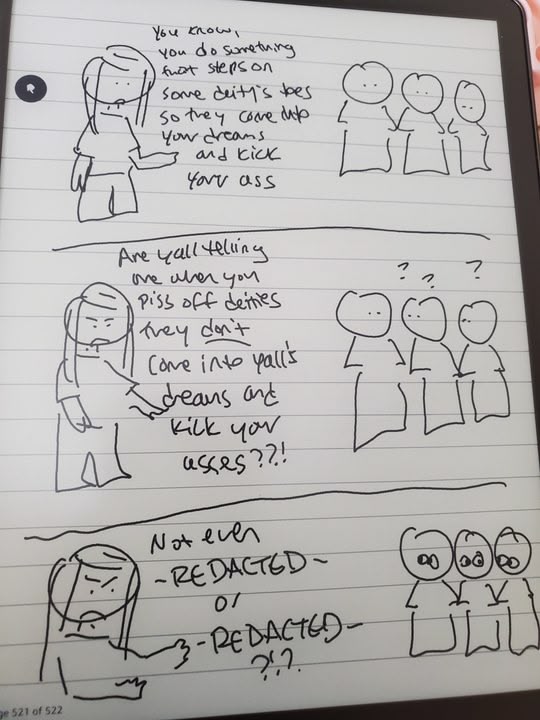 You know,
you do something
that steps on
some deity's toes
so they come into
your dreams
and kick
your ass
Are yall telling
me when you
piss off deities
they don't
come into yall's
dreams and
kick your
asses??!
? ? ?
Not even
-REDACTED-
or
-REDACTED-
?!?
ge 521 of 522